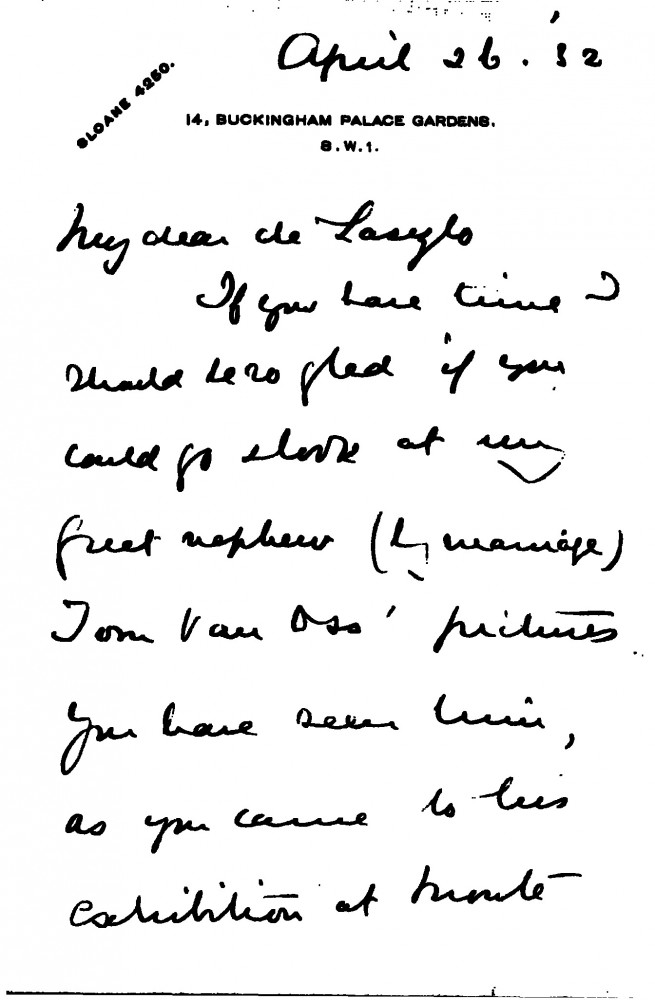 April 26. '32
SLOANE 4250.
14, BUCKINGHAM PALACE GARDENS.
S.W.1.
My dear de Laszlo
If you have time I
should be so glad if you
could go & look at my
great nephew (by marriage)
Tom Van Oss' pictures
You have seen him,
as you came to his
exhibition at Monte